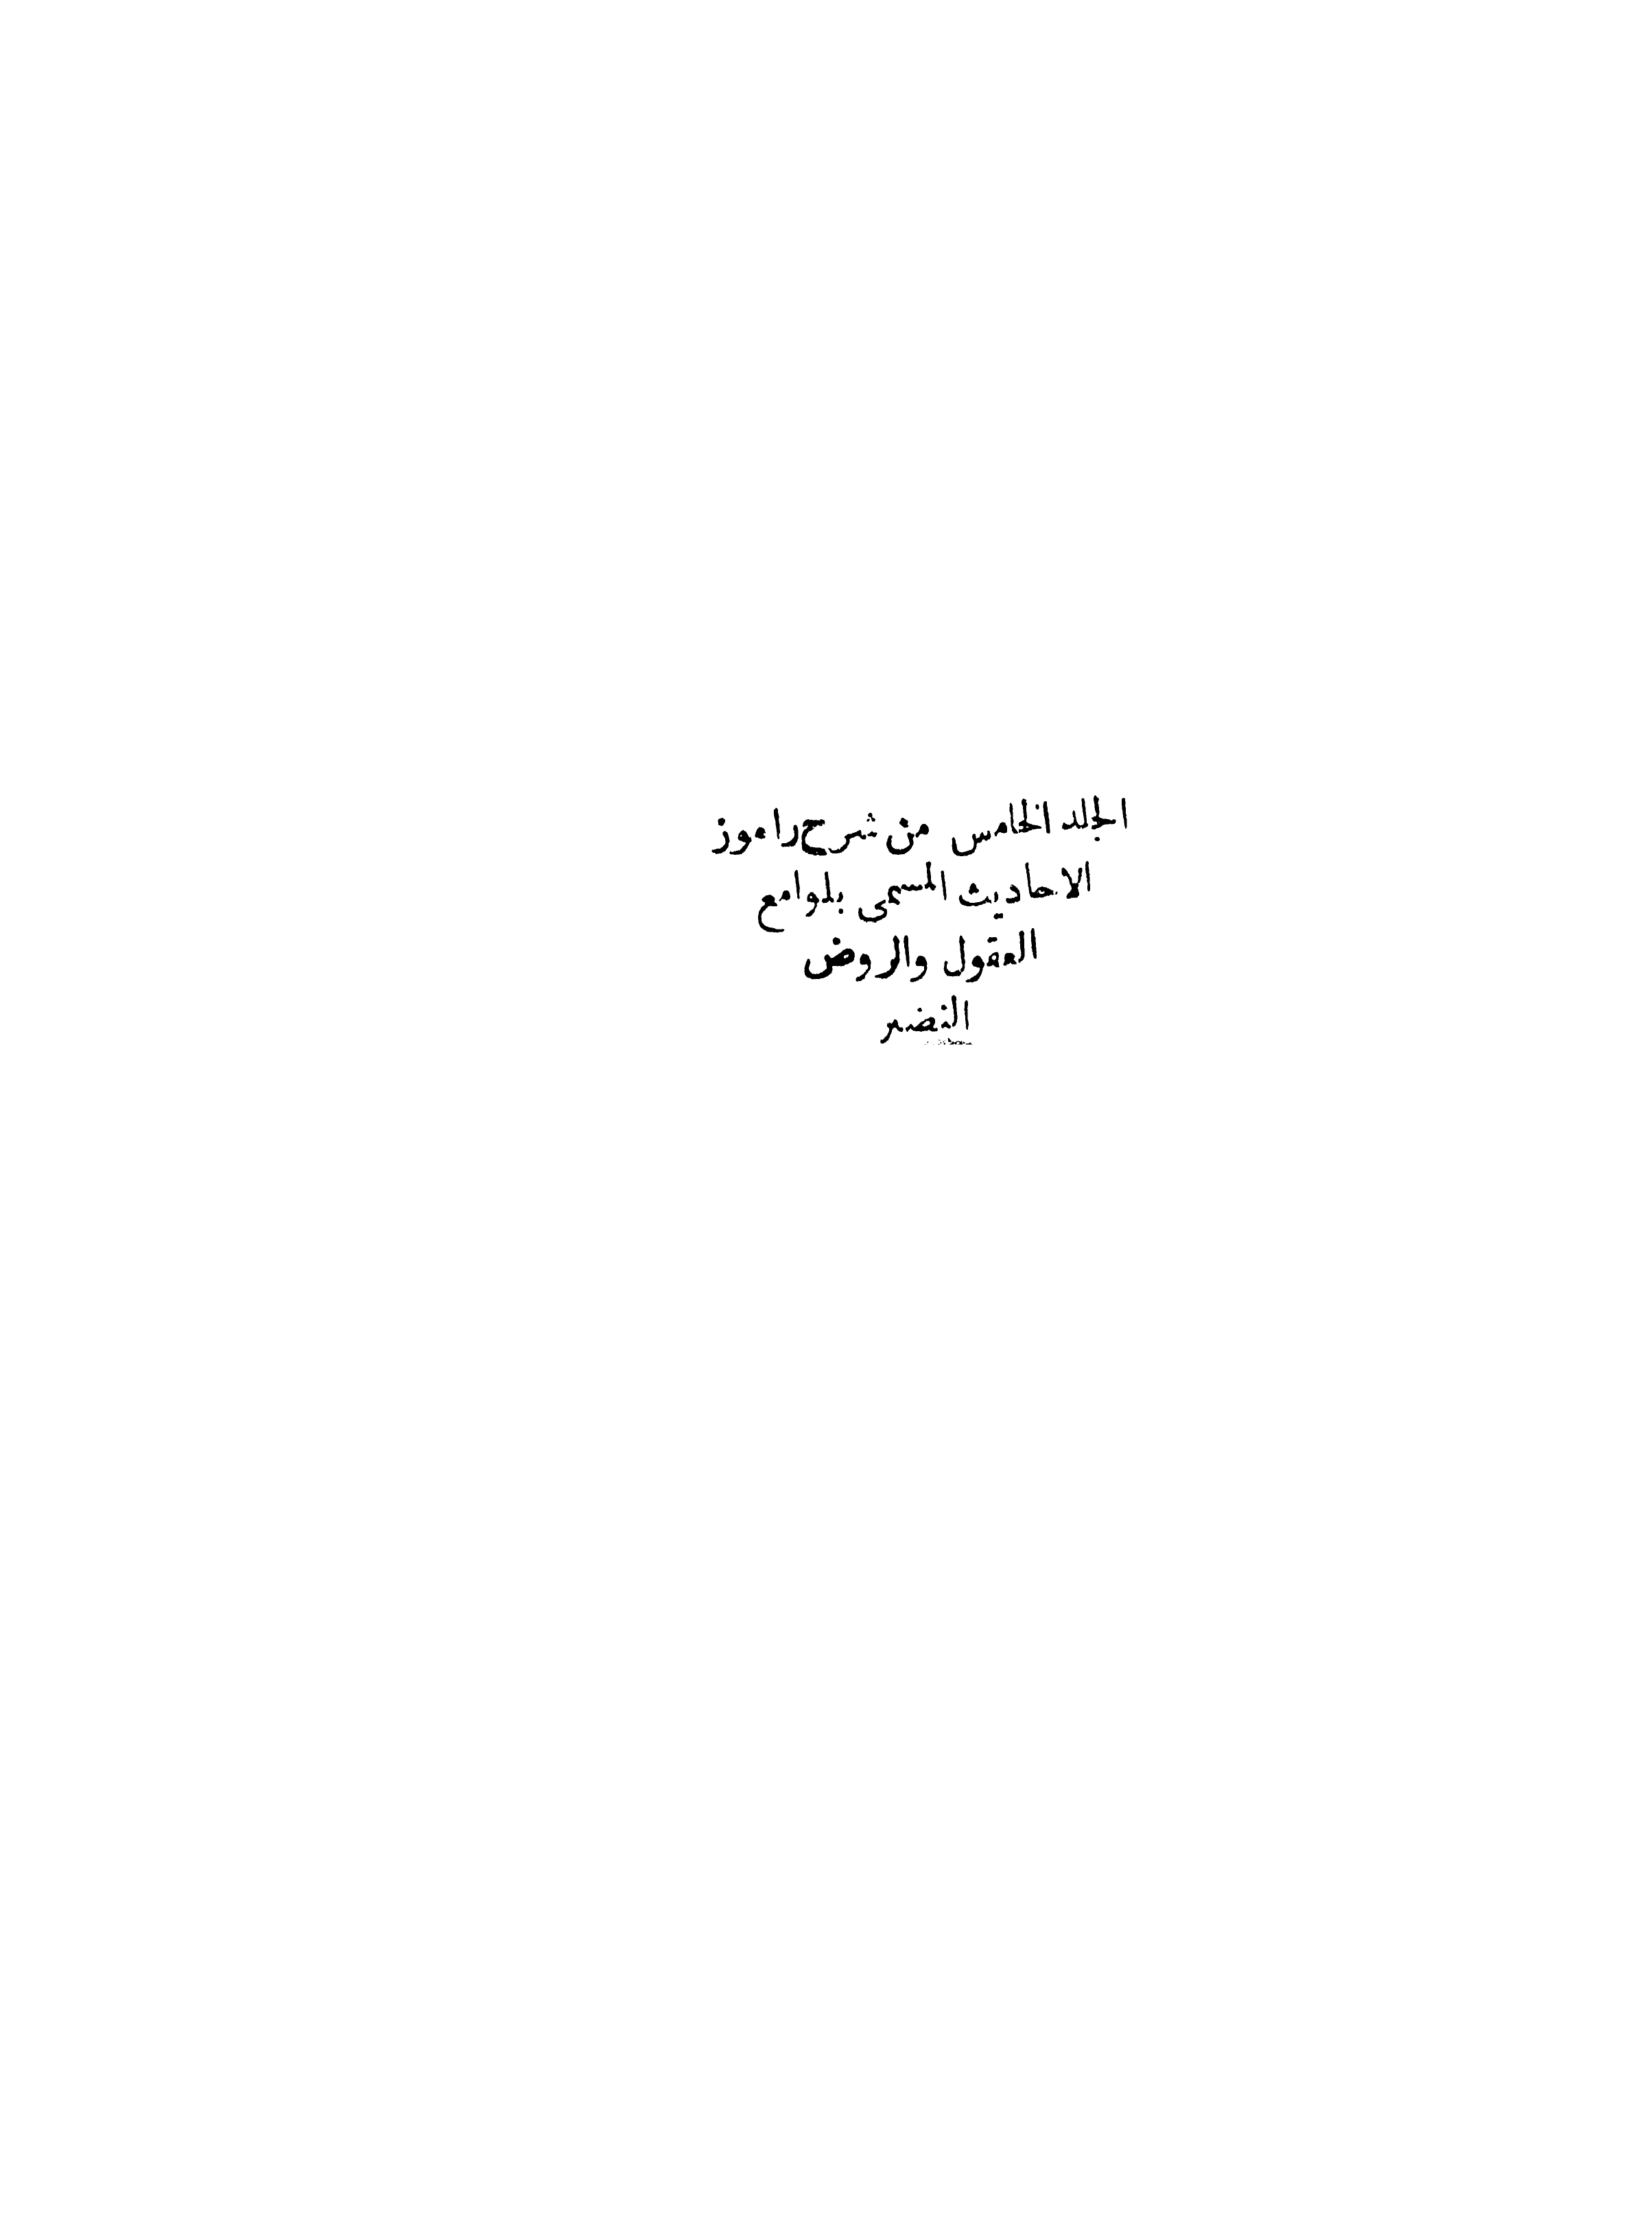 الجلد الخامس من شرح راموز
الاحاديث المسمى بلوامع
العقول والروض
النضير